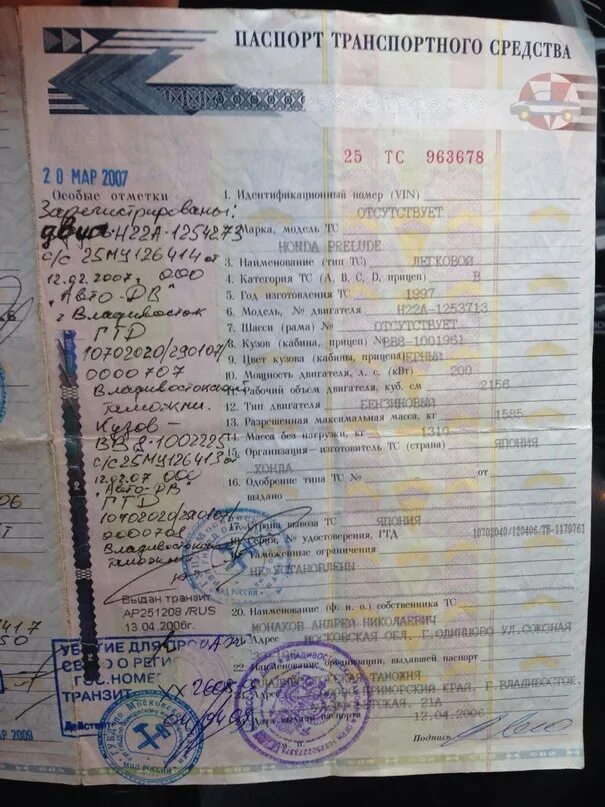 ПАСПОРТ ТРАНСПОРТНОГО СРЕДСТВА
25 ТС 963678
20 МАР 2007
Особые отметки
Зарегистрированы:
двиг. Н22А-1254273
с/с 25МУ126414 от
12.02.2007. ООО
"Авто-ДВ"
г Владивосток
ГТД
10702020/290107/
0000707
Владивостокской
Таможни.
Кузов -
ВВ8-1002225
с/с 25МУ126413 от
12.02.07 ООО
"Авто-ДВ
ГТД
10702020/290107/
Владивосток
таможн
Выдан транзит
АР251208 /RUS
13.04.2006г.
УБЫТИЕ ДЛЯ
ГОС.НОМЕР
ТРАНЗИТ
МВД РОССИИ
1. Идентификационный номер (VIN)
ОТСУТСТВУЕТ
2. Марка, модель ТС
HONDA PRELUDE
3. Наименование (тип ТС) ЛЕГКОВОЙ
4. Категория ТС (А, В, С, D, прицеп) В
5. Год изготовления ТС 1997
6. Модель, № двигателя Н22А-1253713
7. Шасси (рама) № ОТСУТСТВУЕТ
8. Кузов (кабина, прицеп) № ВВ8-1001961
9. Цвет кузова (кабины, прицепа) ЧЕРНЫЙ
10. Мощность двигателя, л. с. (кВт) 200
11. Рабочий объем двигателя, куб. см 2156
12. Тип двигателя БЕНЗИНОВЫЙ
13. Разрешенная максимальная масса, кг 1585
14. Масса без нагрузки, кг 1310
15. Организация - изготовитель ТС (страна) ЯПОНИЯ
ХОНДА
16. Одобрение типа ТС № от
выдано
17. Страна вывоза ТС ЯПОНИЯ
18. Серия, № удостоверения, ГТД 10702040/120406/ТВ-1179761
19. Таможенные ограничения
НЕ УСТАНОВЛЕНЫ
20. Наименование (ф. и. о.) собственника ТС
МОНАХОВ АНДРЕЙ НИКОЛАЕВИЧ
21. Адрес МОСКОВСКАЯ ОБЛ. Г.ОДИНЦОВО УЛ.СОЮЗНАЯ
22. Наименование организации, выдавшей паспорт
ВЛАДИВОСТОКСКАЯ ТАМОЖНЯ
23. Адрес ПРИМОРСКИЙ КРАЙ, Г.ВЛАДИВОСТОК,
21А
24. Дата выдачи паспорта 12.04.2006
Подпись